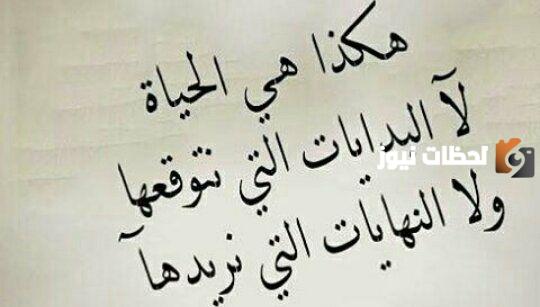 هكذا هي الحياة
لآ البدايات التي نتوقعها
لحظات نيوز
ولا النهايات التي نريدهآ